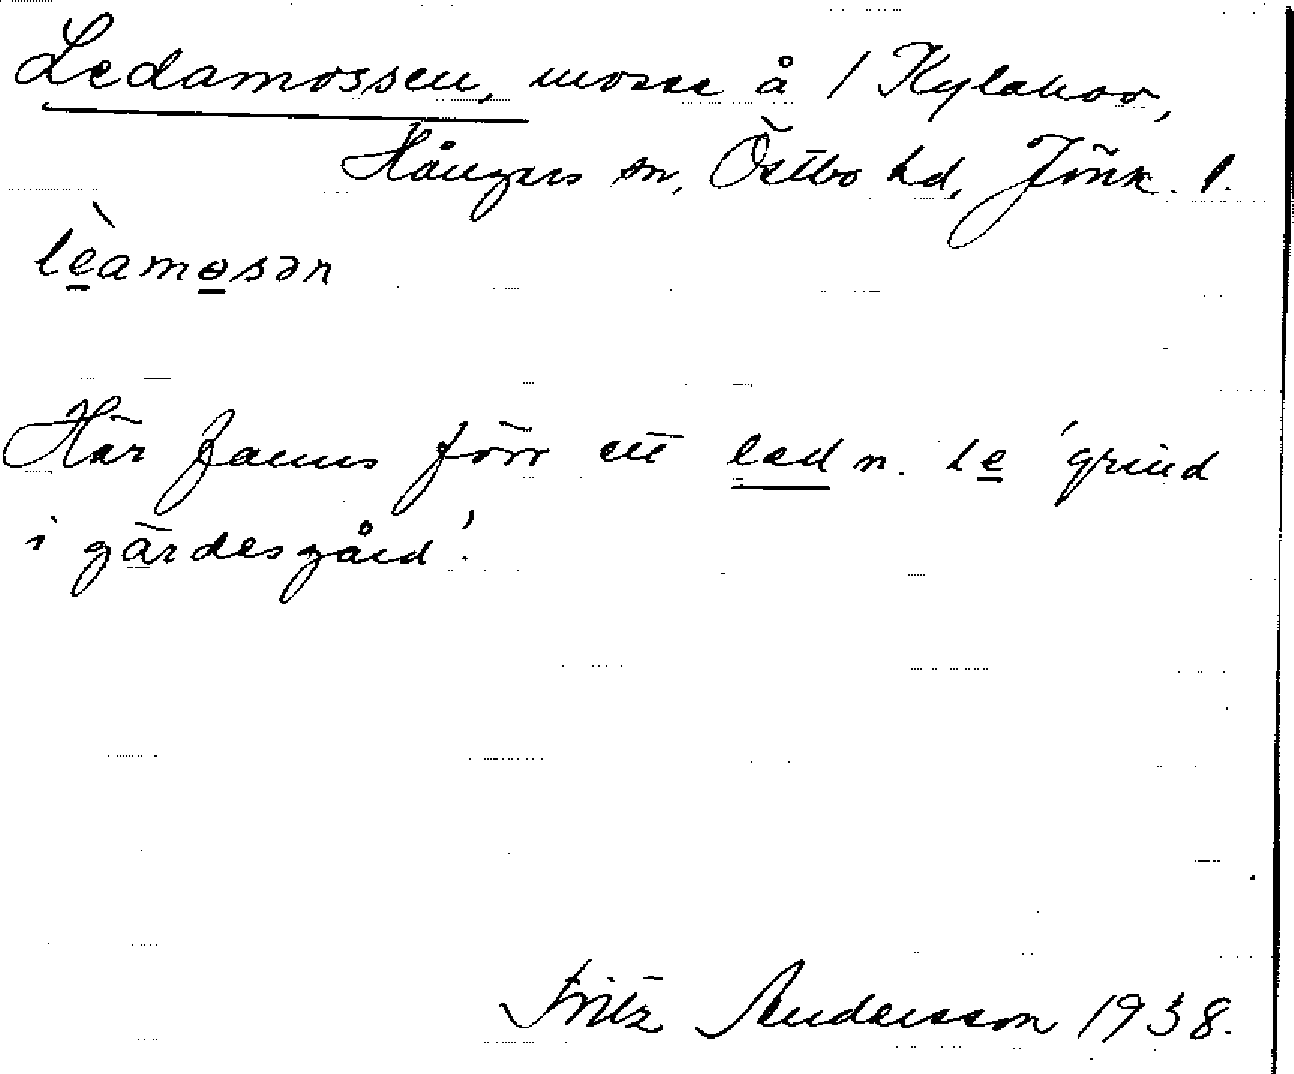 Ledamossen, mosse å / Kylahov,
Hångers sn, Östbo hd, Jönk. l.
lèamosən
Här fanns förr ett led n. le 'grind
i gärdesgård'.
Fritz Andersson 1938.